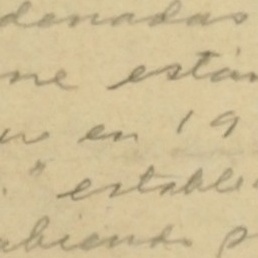 denadas
ne están
en 19
." estable
abiendo p